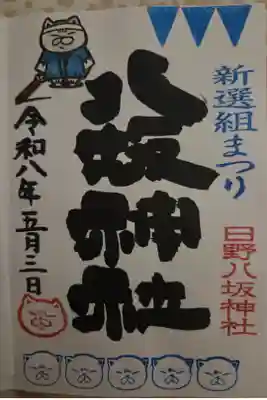 新選組まつり
日野八坂神社
八坂神社
令和八年五月三日